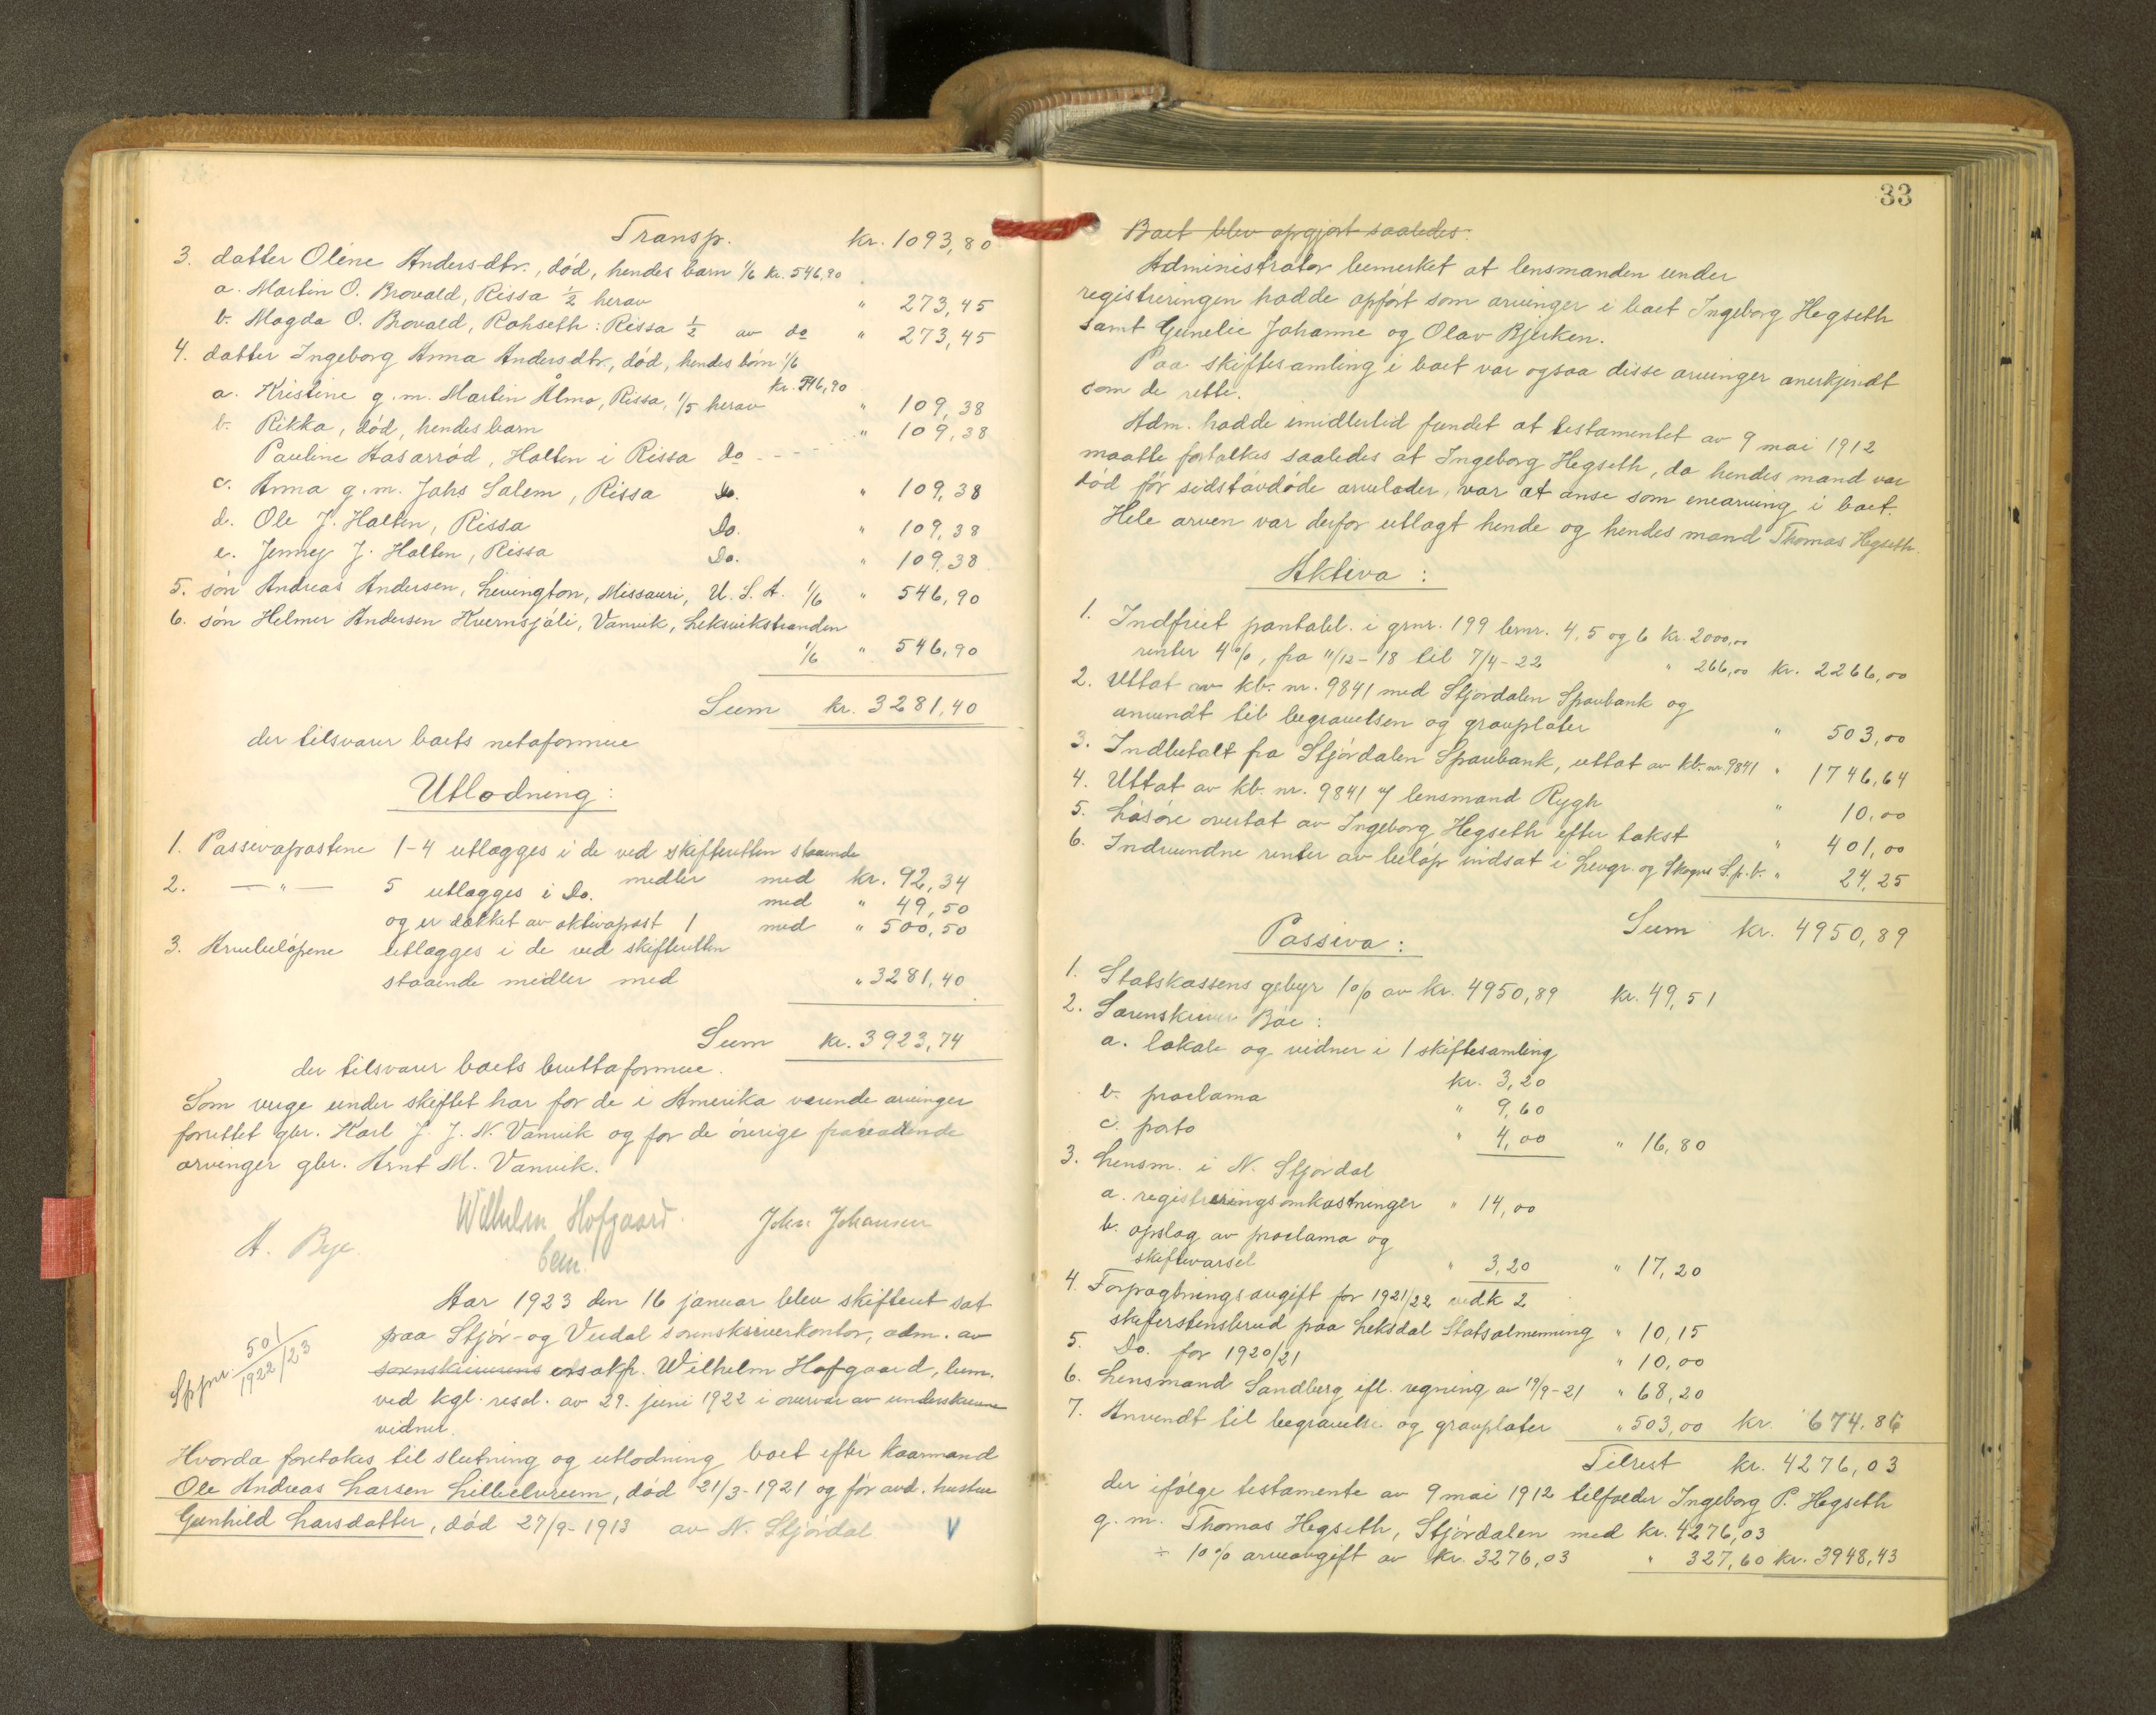 Transp. kr. 1093,80
3. datter Oline Anders-dtr., død, hendes barn 1/6 kr. 546,90
a. Martin O. Brovald, Rissa ½ herav " 273,45
b. Magda O. Brovald, Rohseth: Rissa ½ av do " 273,45
4. datter Ingeborg Anna Andersdtr., død, hendes børn 1/6
kr. 546,90
a. Kristine g.m. Martin Ålmo, Rissa, 1/5 herav " 109,38
b. Rikka, død, hendes barn " 109,38
Pauline Aasarød, Halten i Rissa do - - - -
c. Anna g.m. Johs Salem, Rissa Do. " 109,38
d. Ole J. Halten, Rissa Do. " 109,38
e. Jenney J. Halten, Rissa Do. " 109,38
5. søn Andreas Andersen, Levington, Missauri, U.S.A. 1/6 " 546,90
6. søn Helmer Andersen Kvernsjøli, Vanvik, Leksvikstranden
1/6 " 546,90
Sum kr. 3281,40
der tilsvarer boets netaformue
Utlodning:
1. Passivapostene 1-4 utlægges i de ved skifteretten staaende
midler med kr. 92,34
2. — " — 5 utlægges i Do. med " 49,50
og er dækket av aktivapost 1 med " 500,50
3. Arvebeløpene utlægges i de ved skifteretten
staaende midler med " 3281,40
Sum kr. 3923,74
der tilsvarer boets bruttoformue.
Som verge under skiftet har for de i Amerika værende arvinger
forrettet gbr. Karl J. J. N. Vanvik og for de øvrige fraværende
arvinger gbr. Arnt M. Vanvik.
Wilhelm Hofgaard
bem.
John Johansen
A. Bye
Aar 1923 den 16 januar blev skifteret sat
paa Stjør- og Verdal sorenskriverkontor, adm. av
sorenskriverens ens akf. Wilhelm Hofgaard, bem.
ved kgl. resol. av 29. juni 1922 i overvær av underskrevne
vidner.
Sp. jnr. 501/1922/23
Hvorda foretokes til slutning og utlodning boet efter kaarmand
Ole Andreas Larsen Lilleelvrum, død 21/3-1921 og før avd. hustru
Gunhild Larsdatter, død 27/9-1913 av N. Stjørdal V
33
Boet blev opgjort saaledes:
Administrator bemerket at lensmanden under
registreringen hadde opført som arvinger i boet Ingeborg Hegseth
samt Gunelie Johanne og Olav Bjerken.
Paa skiftesamling i boet var ogsaa disse arvinger anerkjendt
som de rette.
Adm. hadde imidlertid fundet at testamentet av 9 mai 1912
maatte fortolkes saaledes at Ingeborg Hegseth, da hendes mand var
død før sidstavdøde arvelader, var at anse som enearving i boet.
Hele arven var derfor utlagt hende og hendes mand Thomas Hegseth.
Aktiva:
1. Indfriet pantobl. i grnr. 199 brnr. 4, 5 og 6 kr. 2000,00
renter 4%, fra 11/12-18 til 7/4-22 " 266,00 kr. 2266,00
2. Uttat av kb. nr. 9841 med Stjørdalen Sparebank og
anvendt til begravelsen og gravplater " 503,00
3. Indbetalt fra Stjørdalen Sparebank, uttat av kb. nr. 9841 " 1746,64
4. Uttat av kb. nr. 9841 af lensmand Rygh " 10,00
5. Løsøre overtat av Ingeborg Hegseth efter takst " 401,00
6. Indvundne renter av beløp indsat i Levgr. og Skogns S.p.b. " 24,25
Sum kr. 4950,89
Passiva:
1. Statskassens gebyr 1% av kr. 4950,89 kr. 49,51
2. Sorenskriver Bøe:
a. lokale og vidner i 1 skiftesamling
kr. 3,20
b. proclama " 9,60
c. porto " 4,00 " 16,80
3. Lensm. i N. Stjørdal
a. registreringsomkostninger " 14,00
b. opslag av proclama og
skiftevarsel " 3,20 " 17,20
4. Forpagtningsavgift for 1921/22 vedk 2
skiferstensbrud paa Leksdal Statsalmenning " 10,15
5. Do. for 1920/21 " 10,00
6. Lensmand Sandberg ifl. regning av 19/9-21 " 68,20
7. Anvendt til begravelse og gravplater " 503,00 kr. 674,86
Tilrest kr. 4276,03
der ifølge testamente av 9 mai 1912 tilfalder Ingeborg P. Hegseth
g.m. Thomas Hegseth, Stjørdalen med kr. 4276,03
÷ 10% arveavgift av kr. 3276,03 " 327,60 kr. 3948,43